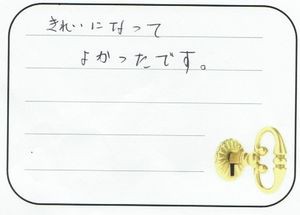 きれいになって
よかったです。